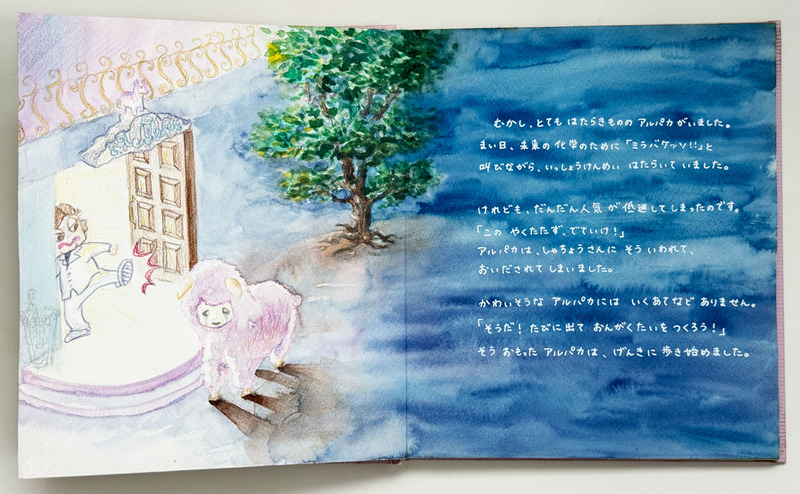 むかし、とても はたらきものの アルパカがいました。
まい日、未来の 化学のために「ミラバケッソ!!」と
叫びながら、いっしょうけんめい はたらいて いました。
けれども、だんだん人気が低迷してしまったのです。
「この やくたたず、でていけ!」
アルパカは、しゃちょうさんに そう いわれて、
おいだされて しまいました。
かわいそうな アルパカには いくあてなど ありません。
「そうだ! たびに出て おんがくたいを つくろう!」
そう おもった アルパカは、げんきに 歩き始めました。